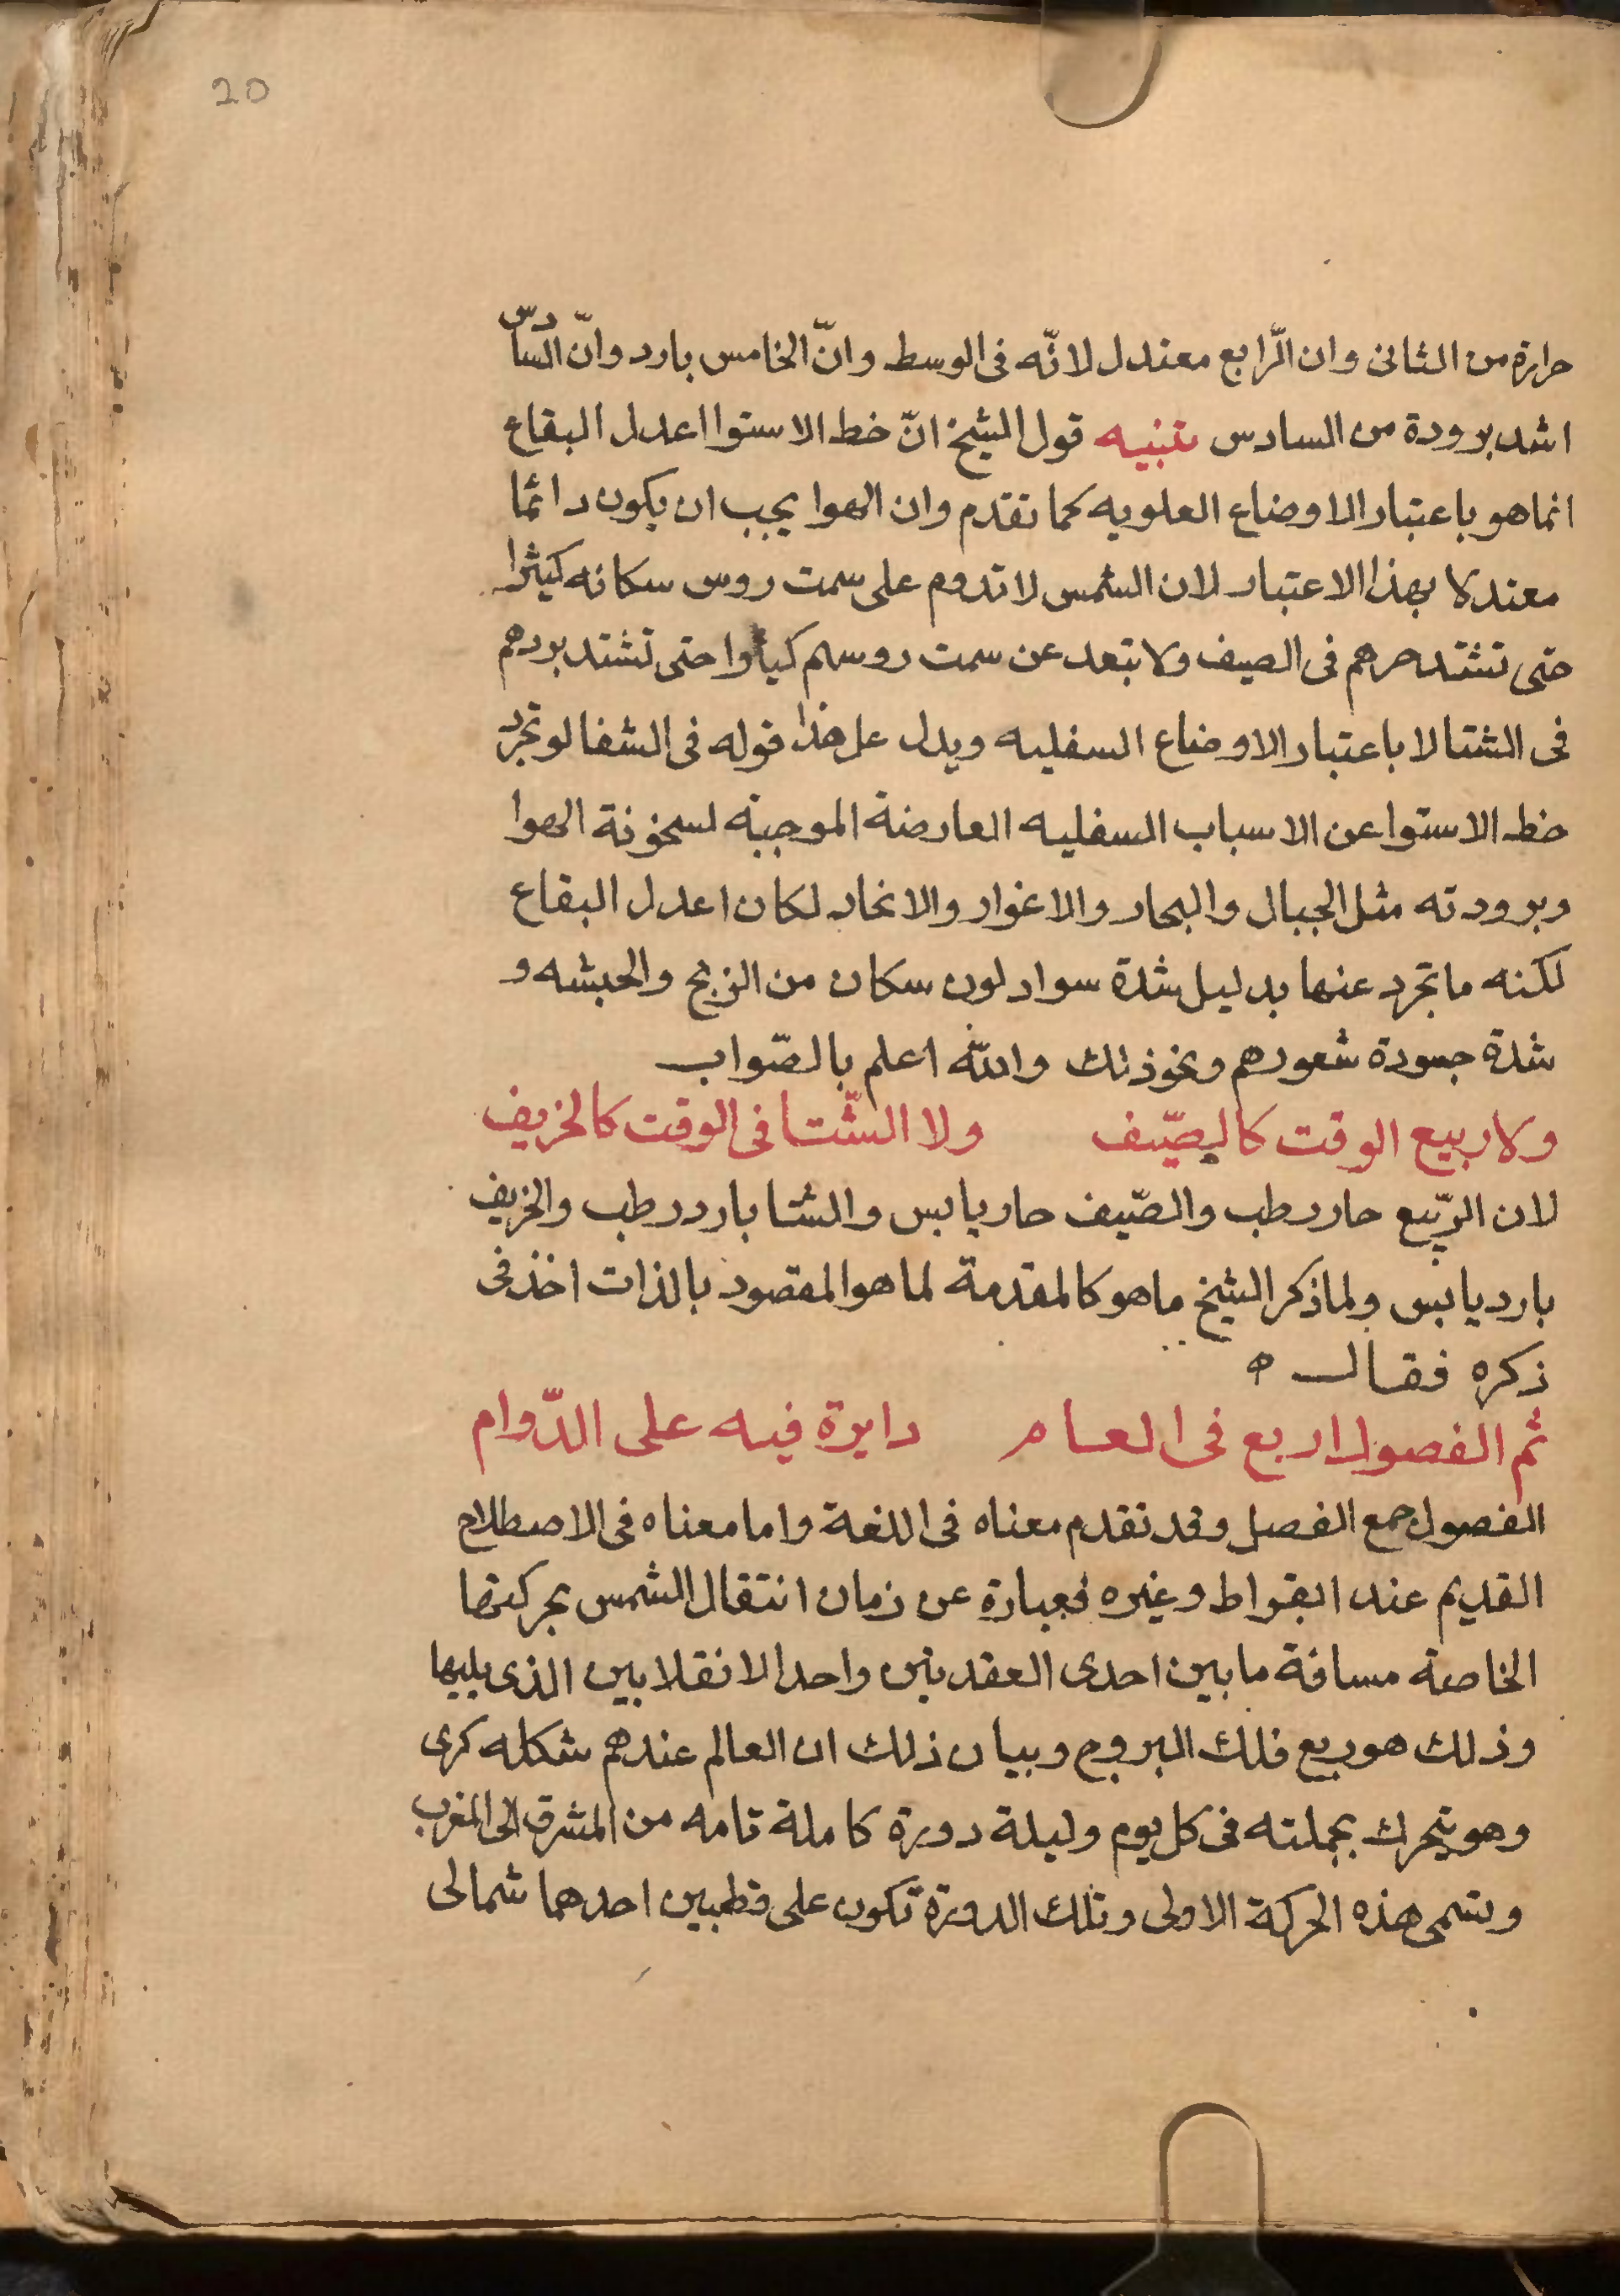 20
حرارة من الثانى وان الرّابع معتدل لانّه فى الوسط وانّ الخامس بارد وانّ السادس
اشد برودة من السادس تنبيه قول الشيخ انّ خط الاستوا اعدل البقاع
انما هو باعتبار الاوضاع العلويه كما تقدم وان الهوا يجب ان يكون دائما
معتدلا بهذا الاعتبار لان الشمس لا تدوم على سمت روس سكانه كثيرا
حتى تشتد حرهم فى الصيف ولا تبعد عن سمت روسهم كثيرا حتى تشتد بردهم
فى الشتا لا باعتبار الاوضاع السفليه ويدل على هذا قوله فى الشفا لو تجرد
خط الاستوا عن الاسباب السفليه العارضة الموجبة لسخونة الهوا
وبرودته مثل الجبال والبحار والاغوار والانجاد لكان اعدل البقاع
لكنه ما تجرد عنها بدليل شدة سواد لون سكان من الزنج والحبشه و
شدة جعودة شعورهم ونحو ذلك والله اعلم بالصّواب
ولا ربيع الوقت كالصّيف ولا الشّتا فى الوقت كالخريف
لان الرّبيع حار رطب والصّيف حار يابس والشتا بارد رطب والخريف
بارد يابس ولما ذكر الشيخ ما هو كالمقدمة لما هو المقصود بالذات اخذ فى
ذكره فقال ه
ثم الفصول اربع فى العام دايرة فيه على الدّوام
الفصول جمع الفصل وقد تقدم معناه فى اللغة واما معناه فى الاصطلاح
القديم عند ابقراط وغيره فعبارة عن زمان انتقال الشمس بحركتها
الخاصة مسافة ما بين احدى العقدتين واحد الانقلابين الذى يليها
وذلك هو ربع فلك البروج وبيان ذلك ان العالم عندهم شكله كرى
وهو يتحرك بجملته فى كل يوم وليلة دورة كاملة تامه من المشرق الى المغرب
وتسمى هذه الحركة الاولى وتلك الدورة تكون على قطبين احدهما شمالى